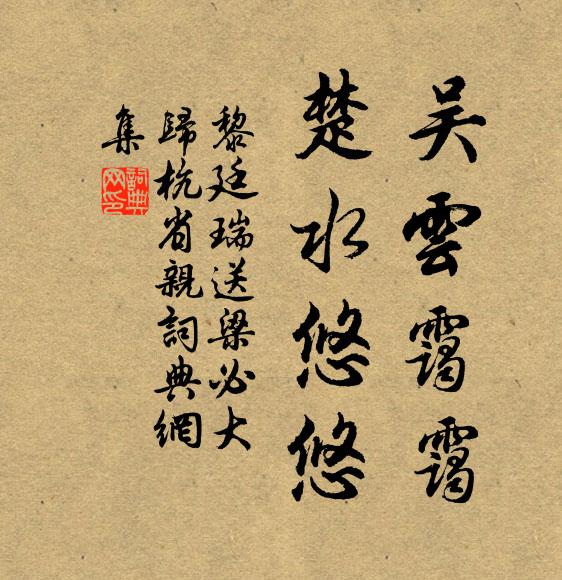 吴雲靄靄
楚水悠悠
黎廷瑞送梁必大
歸杭省親詞典網
集
詞典
网印